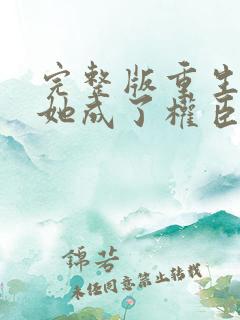 完整版重生
她成了權臣
錦芳
未经同意禁止转载